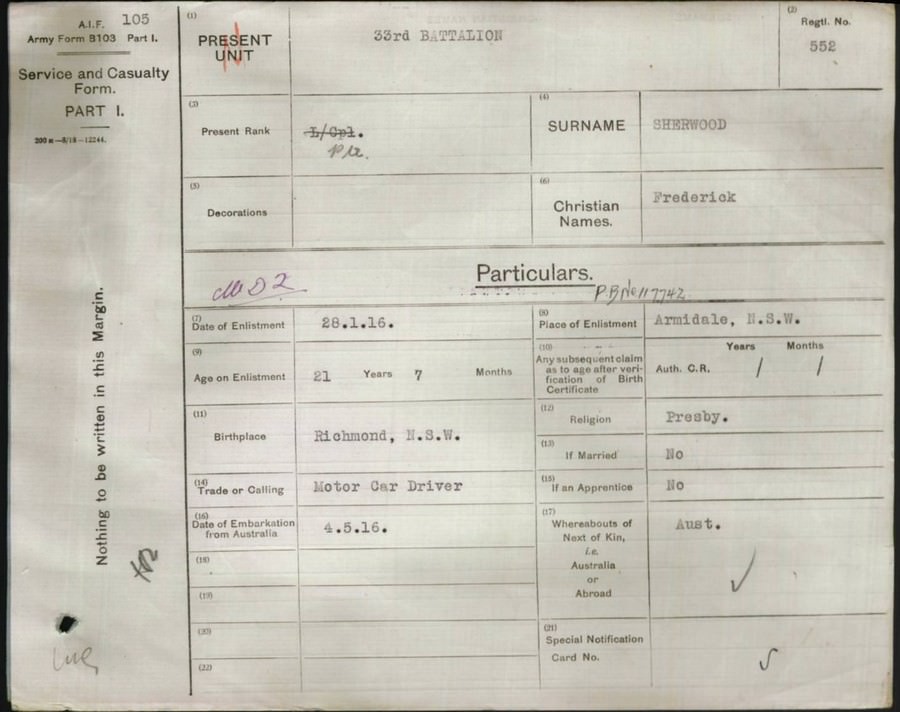 A.I.F. 105
Army Form B103 Part I.
Service and Casualty
Form.
PART I.
200 m—8/18—12244.
Nothing to be written in this Margin.
(1)
PRESENT
UNIT
33rd BATTALION
(2)
Regtl. No.
552
(3)
Present Rank
L/Cpl.
Pte.
(4)
SURNAME
SHERWOOD
(5)
Decorations
(6)
Christian
Names.
Frederick
Particulars.
MD2
P.B No 117742
(7)
Date of Enlistment
28.1.16.
(8)
Place of Enlistment
Armidale, N.S.W.
(9)
Age on Enlistment
21 Years 7 Months
(10)
Any subsequent claim
as to age after veri-
fication of Birth
Certificate
Years Months
Auth. C.R. / /
(11)
Birthplace
Richmond, N.S.W.
(12)
Religion
Presby.
(13)
If Married
No
(14)
Trade or Calling
Motor Car Driver
(15)
If an Apprentice
No
(16)
Date of Embarkation
from Australia
4.5.16.
(17)
Whereabouts of
Next of Kin,
i.e.
Australia
or
Abroad
Aust.
(18)
(19)
(20)
(21)
Special Notification
Card No.
(22)